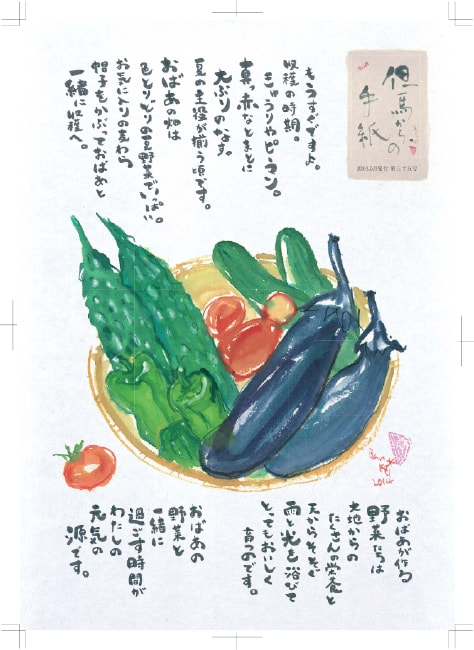 但馬からの
手紙
もうすぐですよ。
収穫の時期。
きゅうりやピーマン。
真っ赤なとまとに
大ぶりのなす。
夏の主役が揃う頃です。
おばあの畑は
色とりどりの夏野菜でいっぱい。
お気に入りの麦わら
帽子をかぶっておばあと
一緒に収穫へ。
2014
おばあが作る
野菜たちは
大地からの
たくさんの栄養と
天からそそぐ
雨と光を浴びて
とってもおいしく
育つのです。
おばあの
野菜と
一緒に
過ごす時間が
わたしの
元気の
源です。